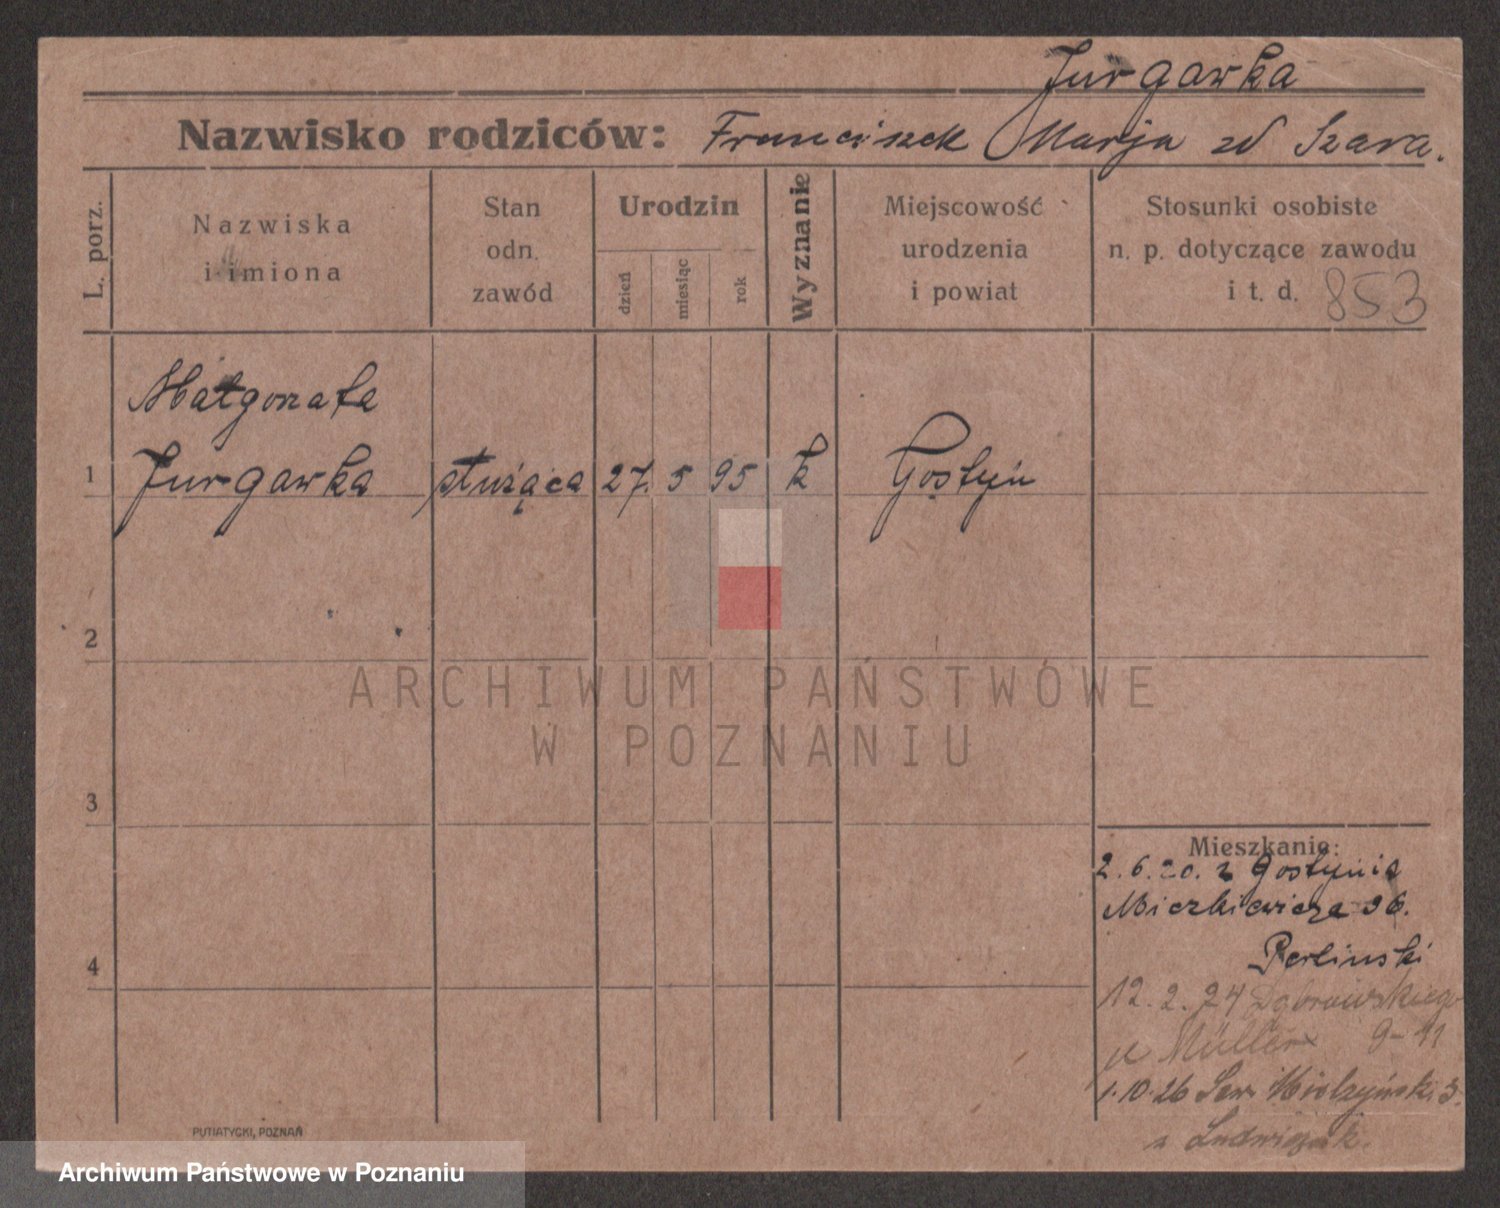 Jurgawka
Nazwisko rodziców: Franciszek Marja zd Szara.
L. porz.
Nazwiska
i imiona
Stan
odn.
zawód
Urodzin
dzień
miesiąc
rok
Wyznanie
Miejscowość
urodzenia
i powiat
Stosunki osobiste
n. p. dotyczące zawodu
i t. d. 853
Małgorzata
1 Jurgawka służąca 27. 5 95 k Gostyń
2
ARCHIWUM PAŃSTWOWE
W POZNANIU
3
Mieszkanie:
2.6.20. z Gostynia
Mickiewicza 36.
4
Perlinski
12.2.24 Dąbrowskiego
u Müller 9-11
1.10.26 Sew. Mielżyński 3.
u Ludwiczak.
PUTIATYCKI, POZNAŃ
Archiwum Państwowe w Poznaniu